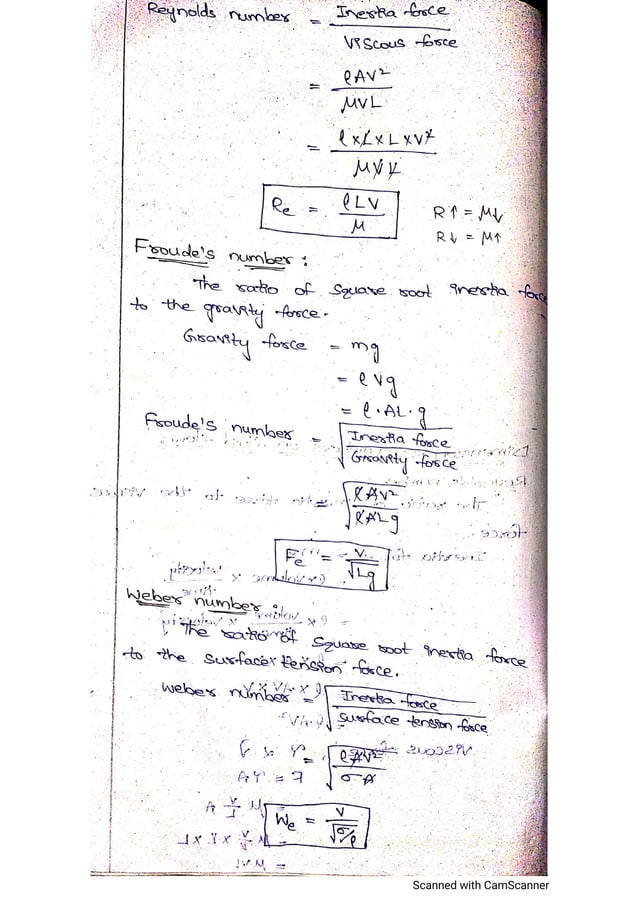 Reynolds number = Inertia force / Viscous force
= ρAV² / μVL
= ρ×L×L×V² / μVL
Re = ρLV / μ
R↑ = μ↓
R↓ = μ↑
Froude's number :
The ratio of square root inertia force
to the gravity force.
Gravity force = mg
= ρVg
= ρ.AL.g
Froude's number = √(Inertia force / Gravity force)
= √(ρAV² / ρALg)
Fe = V / √Lg
Weber number :
The ratio of square root inertia force
to the surface tension force.
Weber number = √(Inertia force / surface tension force)
= √(ρAV² / σA)
We = V / √σ/ρ
Scanned with CamScanner